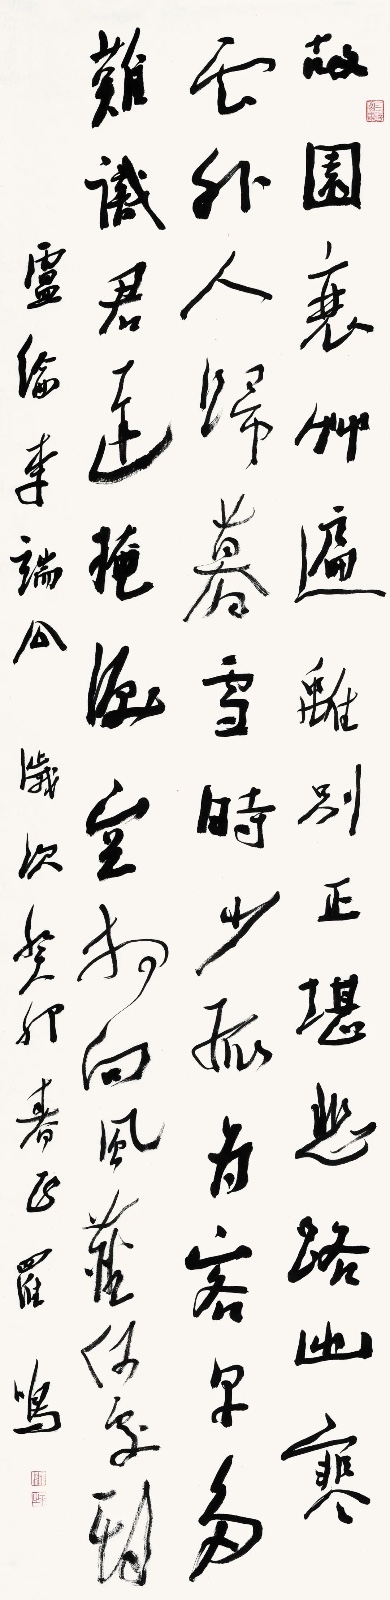 故園衰艸遍離別正堪悲路出寒
云外人歸暮雪時少孤為客早多
難識君遲掩淚空相向風塵何處期
盧綸李端公 歲次癸卯春正 羅鳴